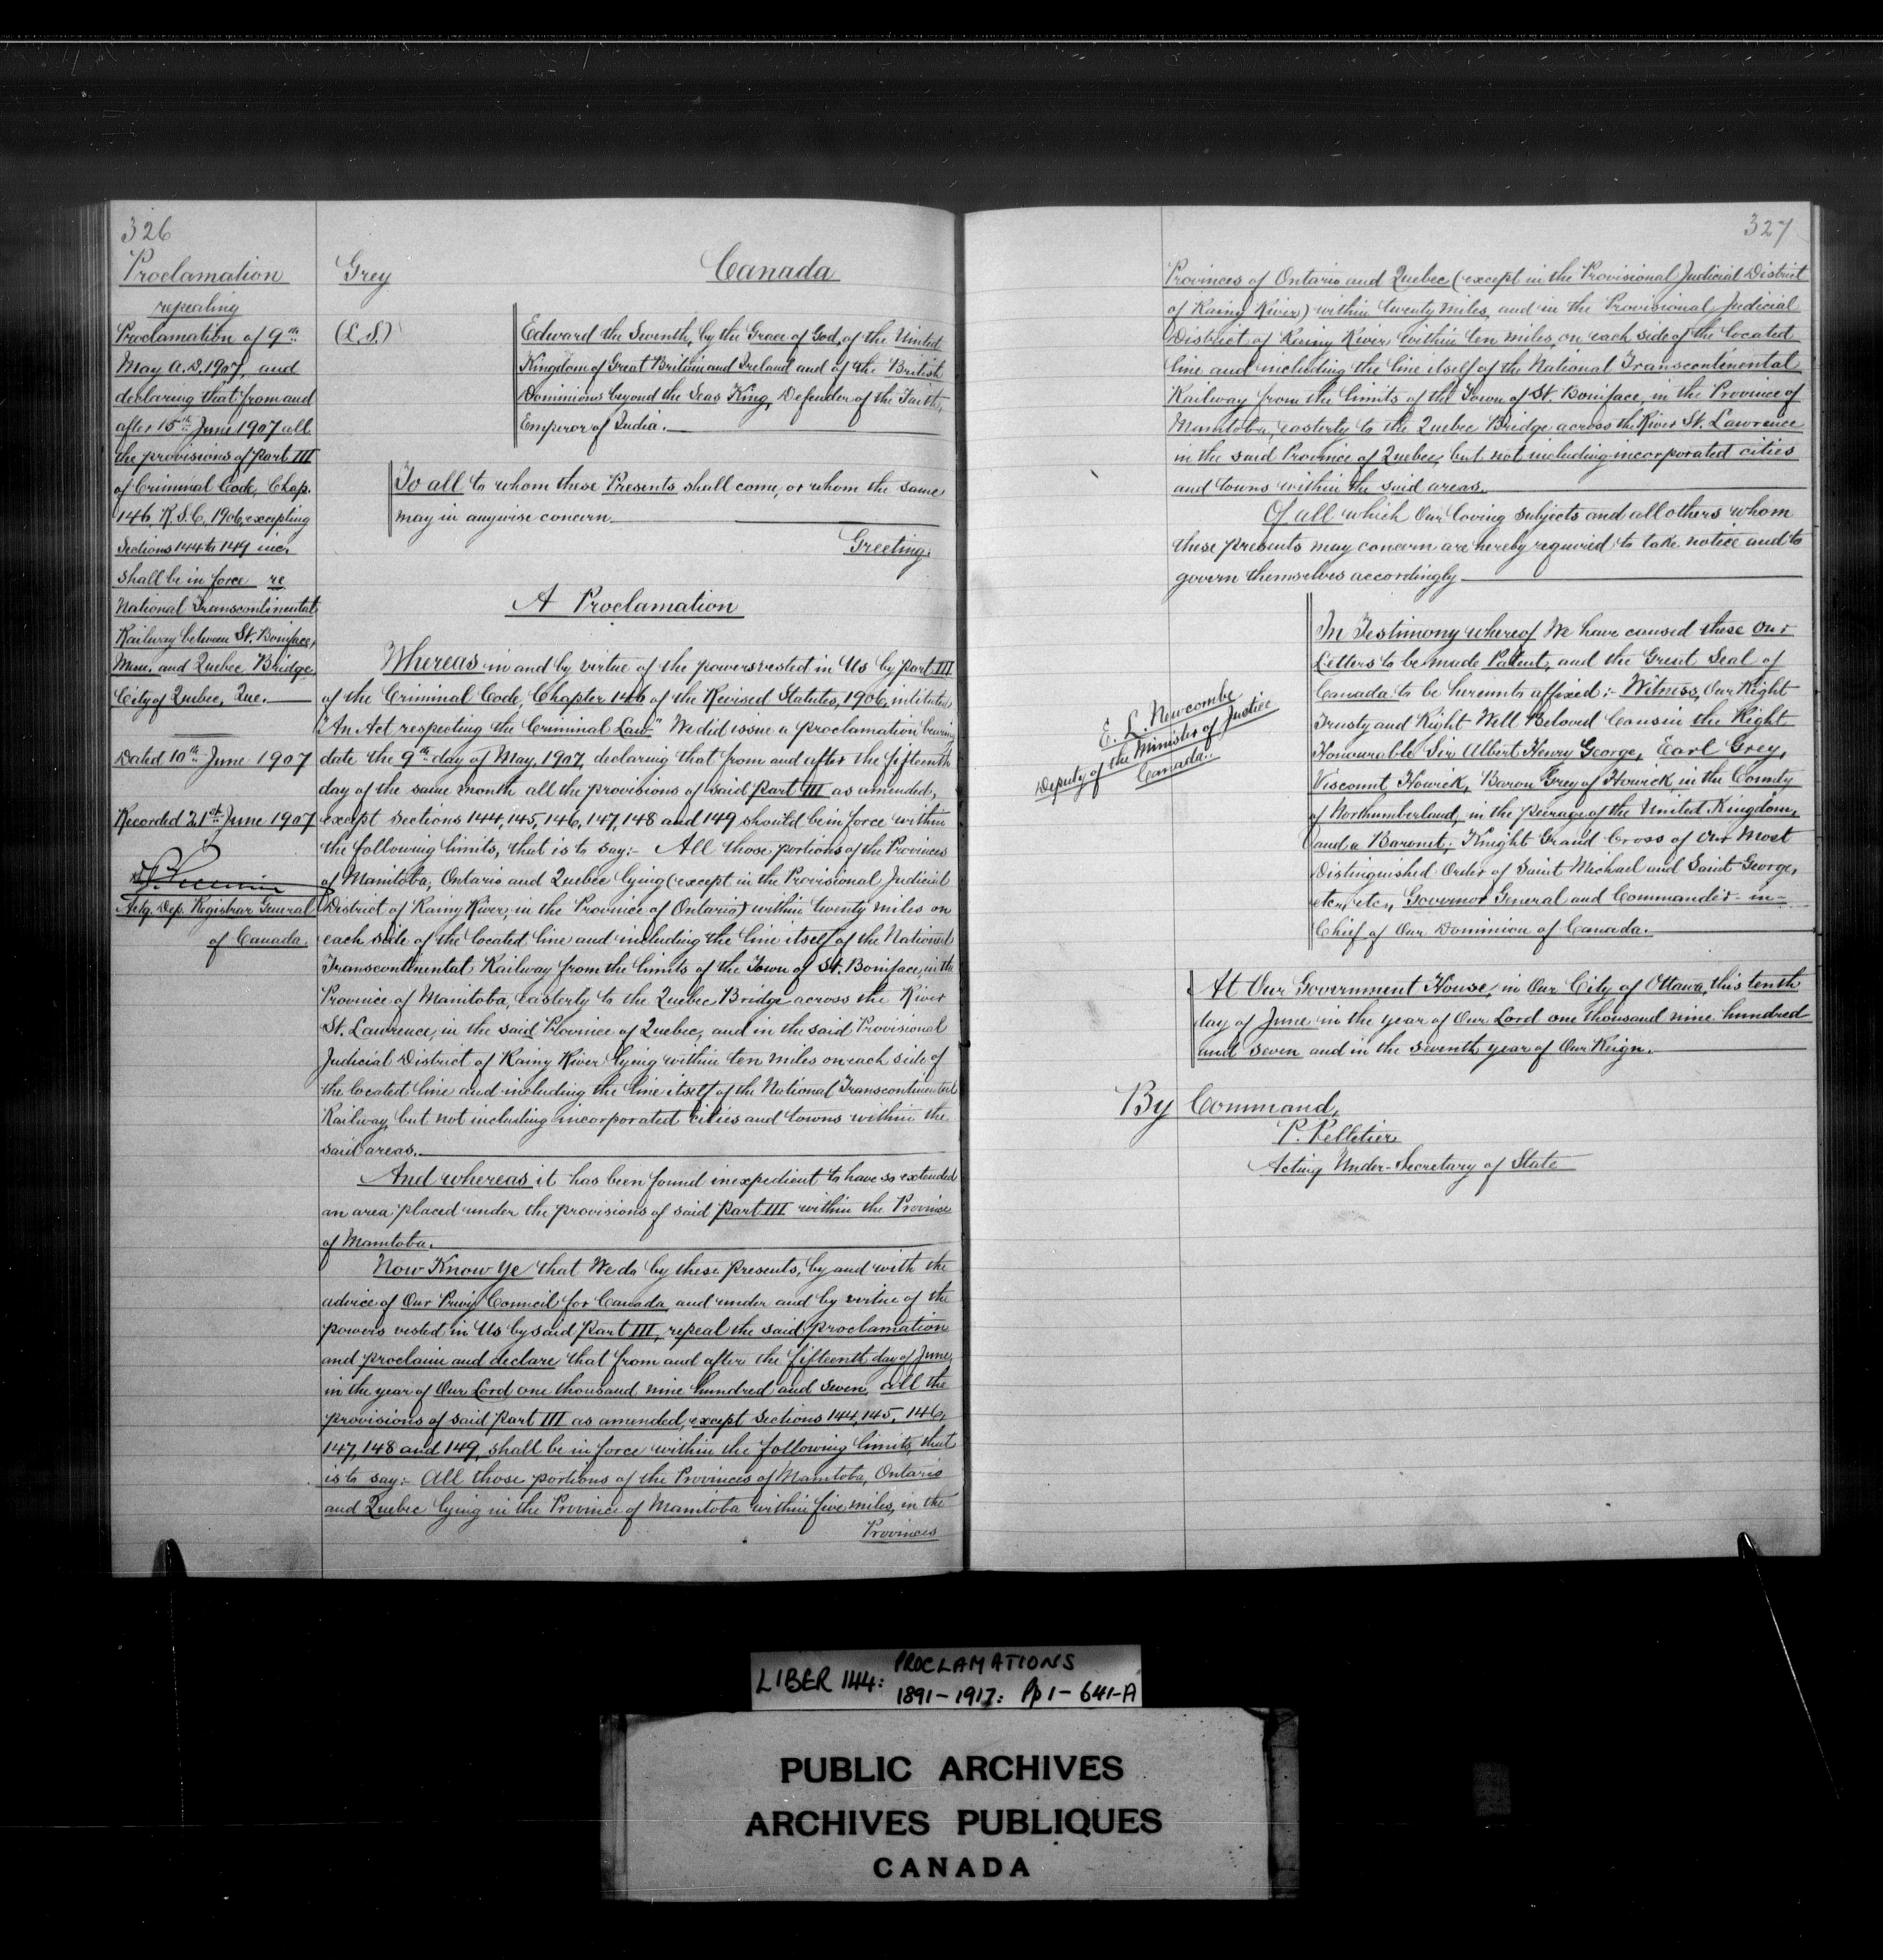 326
Proclamation
repealing
Proclamation of 9th
May A.D. 1907, and
declaring that from and
after 15th June 1907 all
the provisions of Part III
of Criminal Code, Chap.
146, R.S.C. 1906, excepting
Sections 144 to 149 inc.
shall be in force re
National Transcontinental
Railway between St. Boniface,
Man. and Quebec Bridge,
City of Quebec, Que.
Dated 10th June 1907
Recorded 21st June 1907
Actg. Dep. Registrar General
of Canada.
Grey
Canada
(L.S.)
Edward the Seventh, by the Grace of God, of the United
Kingdom of Great Britain and Ireland and of the British
Dominions beyond the Seas King, Defender of the Faith,
Emperor of India.
To all to whom these Presents shall come, or whom the same
may in anywise concern.
Greeting.
A Proclamation
Whereas in and by virtue of the powers vested in Us by Part III
of the Criminal Code, Chapter 146 of the Revised Statutes, 1906, intituled
"An Act respecting the Criminal Law" We did issue a proclamation bearing
date the 9th day of May, 1907, declaring that from and after the fifteenth
day of the same month all the provisions of said Part III as amended,
except sections 144, 145, 146, 147, 148 and 149 should be in force within
the following limits, that is to say:- All those portions of the Provinces
of Manitoba, Ontario and Quebec lying (except in the Provisional Judicial
District of Rainy River, in the Province of Ontario) within twenty miles on
each side of the located line and including the line itself of the National
Transcontinental Railway from the limits of the Town of St. Boniface, in the
Province of Manitoba, easterly to the Quebec Bridge across the River
St. Lawrence, in the said Province of Quebec, and in the said Provisional
Judicial District of Rainy River lying within ten miles on each side of
the located line and including the line itself of the National Transcontinental
Railway, but not including incorporated cities and towns within the
said areas.
And whereas it has been found inexpedient to have so extended
an area placed under the provisions of said Part III within the Province
of Manitoba.
Now Know Ye that We do by these presents, by and with the
advice of Our Privy Council for Canada, and under and by virtue of the
powers vested in Us by said Part III, repeal the said proclamation
and proclaim and declare that from and after the fifteenth day of June,
in the year of Our Lord one thousand nine hundred and seven, all the
provisions of said Part III as amended, except sections 144, 145, 146,
147, 148 and 149, shall be in force within the following limits, that
is to say:- All those portions of the Provinces of Manitoba, Ontario
and Quebec lying in the Province of Manitoba within five miles, in the
Provinces
327
Provinces of Ontario and Quebec (except in the Provisional Judicial District
of Rainy River) within twenty miles, and in the Provisional Judicial
District of Rainy River within ten miles, on each side of the located
line and including the line itself of the National Transcontinental
Railway from the limits of the Town of St. Boniface, in the Province of
Manitoba, easterly to the Quebec Bridge across the River St. Lawrence
in the said Province of Quebec, but not including incorporated cities
and towns within the said areas.
Of all which Our loving subjects and all others whom
these presents may concern are hereby required to take notice and to
govern themselves accordingly
E. L. Newcombe
Deputy of the Minister of Justice
Canada.
In Testimony whereof We have caused these Our
Letters to be made Patent, and the Great Seal of
Canada to be hereunto affixed:- Witness, Our Right
Trusty and Right Well Beloved Cousin the Right
Honourable Sir Albert Henry George, Earl Grey,
Viscount Howick, Baron Grey of Howick, in the County
of Northumberland, in the peerage of the United Kingdom,
and a Baronet; Knight Grand Cross of Our Most
Distinguished Order of Saint Michael and Saint George,
etc., etc., Governor General and Commander-in-
Chief of Our Dominion of Canada.
At Our Government House, in Our City of Ottawa, this tenth
day of June in the year of Our Lord one thousand nine hundred
and seven and in the seventh year of Our Reign.
By Command,
P. Pelletier
Acting Under-Secretary of State
LIBER 144: PROCLAMATIONS
1891-1917: Pp 1-641-A
PUBLIC ARCHIVES
ARCHIVES PUBLIQUES
CANADA